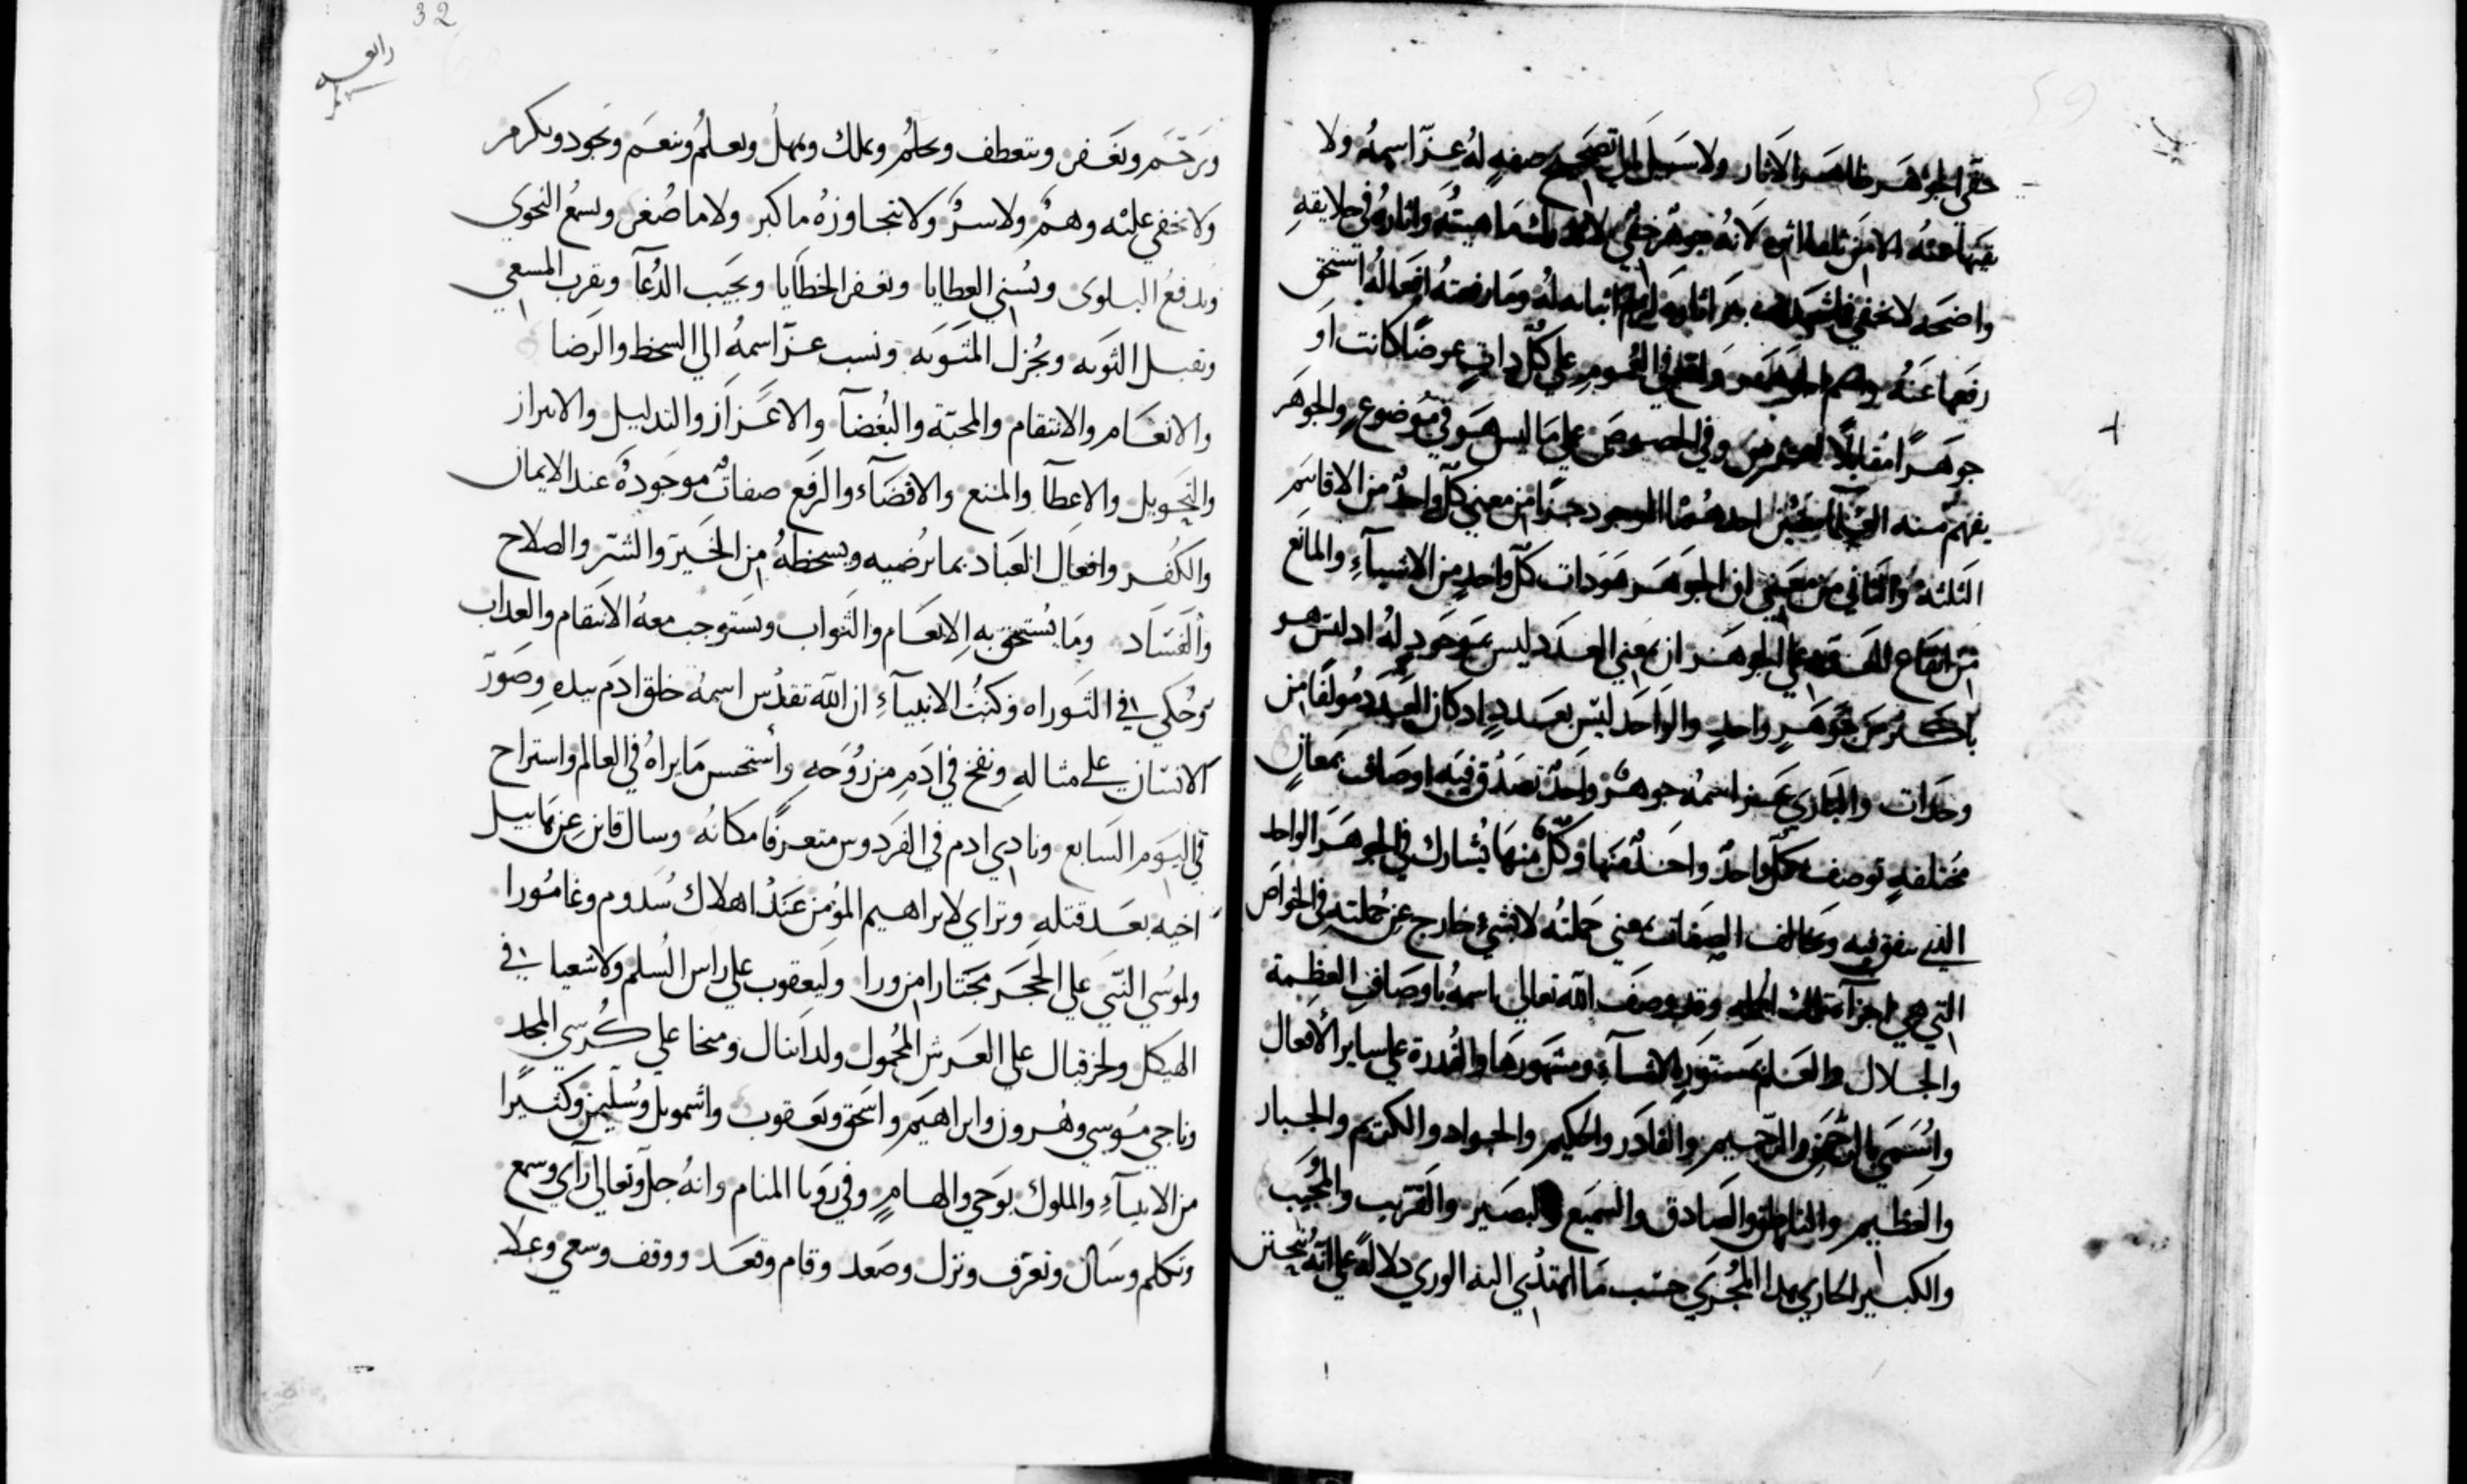 خفي الجوهر ظاهر الاثار ولا سبيل الي تصحيح صفه له عز اسمه ولا
نفيها عنه الا من تلقا اثره لانه جوهر خفي لا تدرك ماهيته واثاره في خلايقه
واضحه لا تخفي فما شهدت به اثاره لزم اثباته له وما رفعته افعاله استحق
رفعها عنه واسم الجوهر واقع في العموم علي كل ذات عرضًا كانت او
جوهرًا مقابلًا للعرض وفي الخصوص علي ما ليس هو في موضوع والجوهر
يفهم منه احدهما الموجود جزا من معني كل واحد من الاقانيم
الثلثه والثاني من معني ان الجوهر هو ذات كل واحد من الاشيآء والمانع
من ايقاع العدد علي الجوهر ان معني العدد ليس بموجود له اد ليس هو
باكثر من جوهرٍ واحدٍ والواحد ليس بعددٍ اد كان العدد مولفًا من
وحدات والباري عز اسمه جوهر واحد تصدق فيه اوصاف بمعانٍ
مختلفهٍ توصف كل واحد واحد منها وكل منها يشارك في الجوهر الواحد
الذي يتفق فيه وتخالف الصفات معني جملته لا بشيء خارج عن جملته في الخواص
التي هي اجزآ تلك الجمله وقد وصف الله تعالي اسمه باوصاف العظمة
والجلال والعلم بمستور الاشيآء ومشهورها والقدرة علي ساير الافعال
واتسمي بالرحمن والرحيم والقادر والحكيم والجواد والكريم والجبار
والعظيم والناطق والصادق والسميع والبصير والقريب والمجيب
والكبير الجاري هدا المجري حسب ما اهتدي اليه الوري دلالةً علي انه يتحنن
32
رابعه
ويرحم ويغفر ويتعطف ويحلم ويملك ويمهل ويعلم وينعم ويجود ويكرم
ولا يخفي عليه وهم ولا سر ولا يتجاوزه ما كبر ولا ما صغر ويسمع النجوي
ويدفع البلوي ويسني العطايا ويغفر الخطايا ويجيب الدعآ ويقرب المسعي
ويقبل التوبه ويجزل المثوبه ونسب عز اسمه الي السخط والرضا
والانعام والانتقام والمحبة والبغضآ والاعزاز والتدليل والابراز
والتحويل والاعطآ والمنع والاقصآء والرفع صفات موجودة عند الايمان
والكفر وافعال العباد بما يرضيه ويسخطه من الخير والشر والصلاح
والفساد وما يستحق به الانعام والثواب ويستوجب معه الانتقام والعداب
وحكي في التوراه وكتب الانبيآء ان الله تقدس اسمه خلق ادم بيده وصور
الانسان علي مثاله ونفخ في ادم من روحه واستحسن ما يراه في العالم واستراح
في اليوم السابع ونادي ادم في الفردوس متعرفًا مكانه وسال قاين عن هابيل
اخيه بعد قتله وتراي لابراهيم المؤمن عند اهلاك سدوم وغامورا
ولموسي النبي علي الحجر مجتازا من ورا وليعقوب علي راس السلم ولاشعيا في
الهيكل ولحزقيال علي العرش المحمول ولدانيال وميخا علي كرسي المجد
وناجي موسي وهرون وابراهيم واسحق ويعقوب واشمويل وسليمن وكثيرًا
من الانبيآء والملوك بوحي والهامٍ وفي رويا المنام وانه جل وتعالي رآي وسمع
وتكلم وسال وتعرف ونزل وصعد وقام وقعد ووقف وسعي وعلا